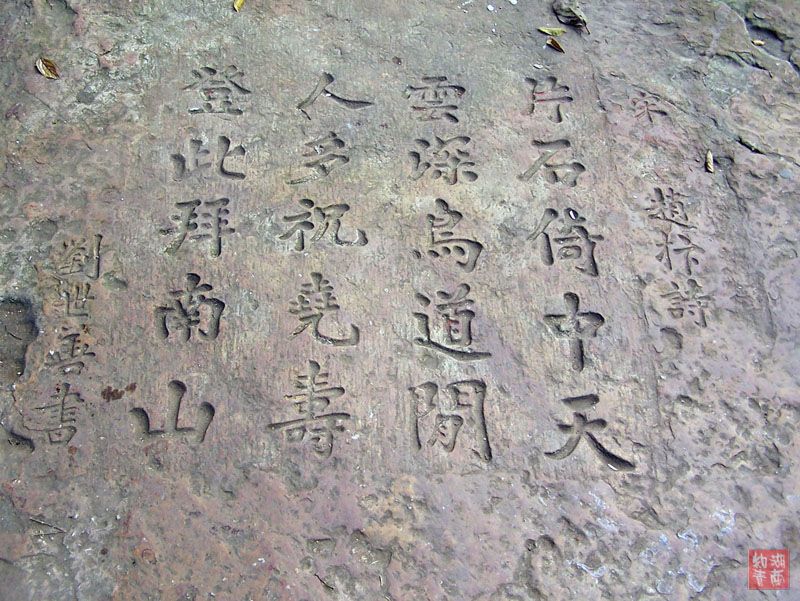 宋 趙抃詩
片石倚中天
雲深鳥道閒
人多祝堯壽
登此拜南山
劉世善書
湖南
知青